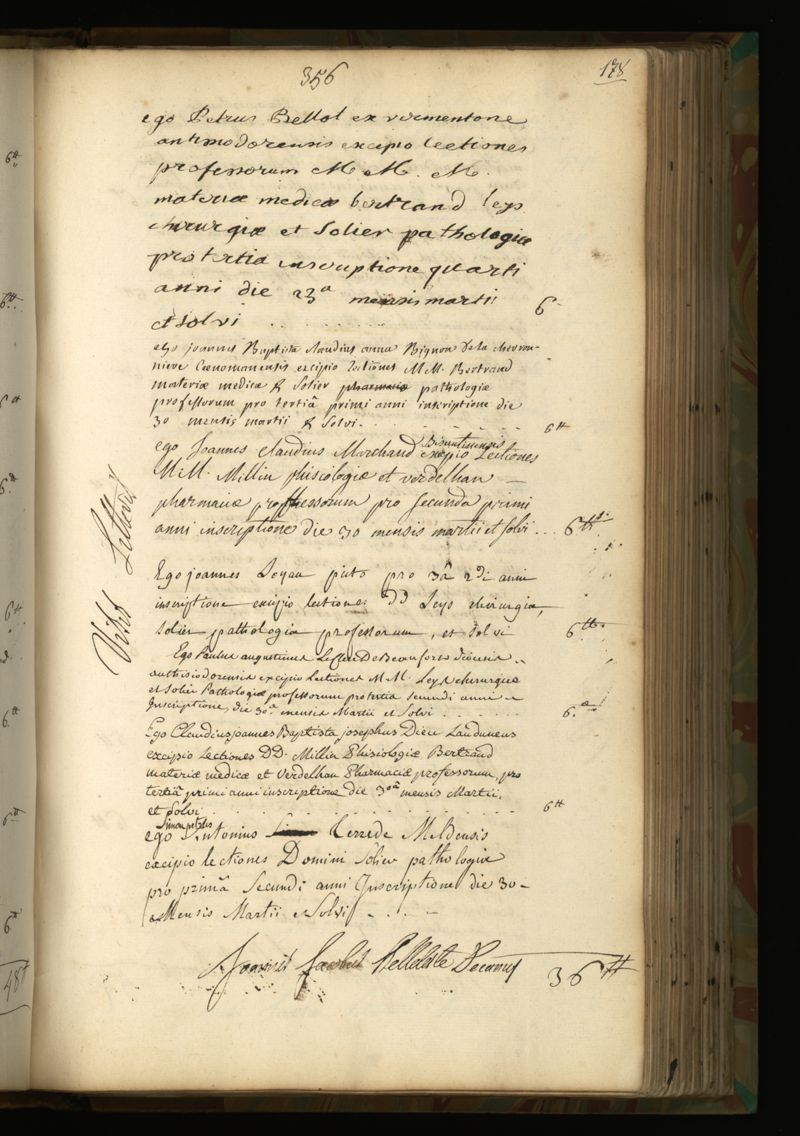 356
178
ego Petrus Bellot ex vermentone
antissiodorensis excipio lectiones
professorum M M. M.
materiæ medicæ bertrand leys
chirurgiæ et Solier pathologiæ
pro tertia inscriptione quarti
anni die 23ª mensis martii
et solvi . . . . . . . . 6
ego joannes Baptista claudius anna Bignon de la chevron-
niere Cœnomanensis excipio lectiones M M. Bertrand
materiæ medicæ & Solier pathologiæ
professorum pro tertiâ primi anni inscriptione die
30 mensis martii & Solvi. . . . . . . . 6tt
ego Joannes claudius Marchand Bisuntinensis excipio Lectiones
M.M. Millin phisiologiæ et verdelhan
pharmaciæ professorum pro secunda primi
anni inscriptione die 30 mensis martii et solvi . . . 6tt
Vidit Lettevié
Ego joannes pro 3â 2di anni
inscriptione excipio lectiones DD Leys chirurgiæ,
Solier pathologiæ professorum, et solvi 6tt
Ego Paulus augustinus Leclerc De Beaufort diœcesis
authisiodorensis excipio Lectiones M M. Leys chirurgiæ
et Solier Pathologiæ professorum pro tertia secundi anni
Inscriptione, die 30ª mensis Martii et Solvi . . . . . . . 6.tt
Ego Claudius joannes Baptista josephus Dieu Lauduneus
excipio Lectiones DD. Millin Phisiologiæ Bertrand
materiæ medicæ et Verdelhan Pharmaciæ professorum, pro
tertiâ primi anni inscriptione die 30â mensis Martii.
et Solvi . . . . . . . . . . . 6tt
ego Antonius Terrede Meldensis
excipio lectiones Domini Solier pathologiæ
pro primâ Secundi anni Inscriptione die 30-
Mensis Martii et Solvi . . . -
Joannes Jacobus Belleteste Decanus 36tt
6tt
48tt